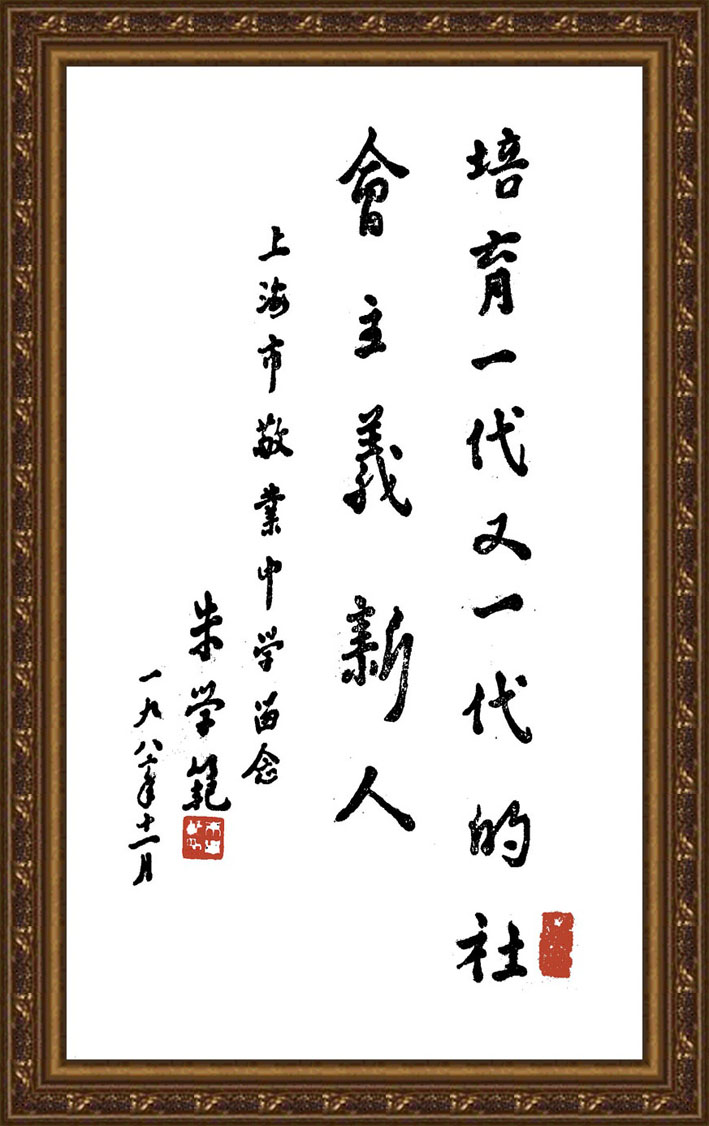 培育一代又一代的社
會主義新人
上海市敬業中学留念
朱学範
一九八六年十一月